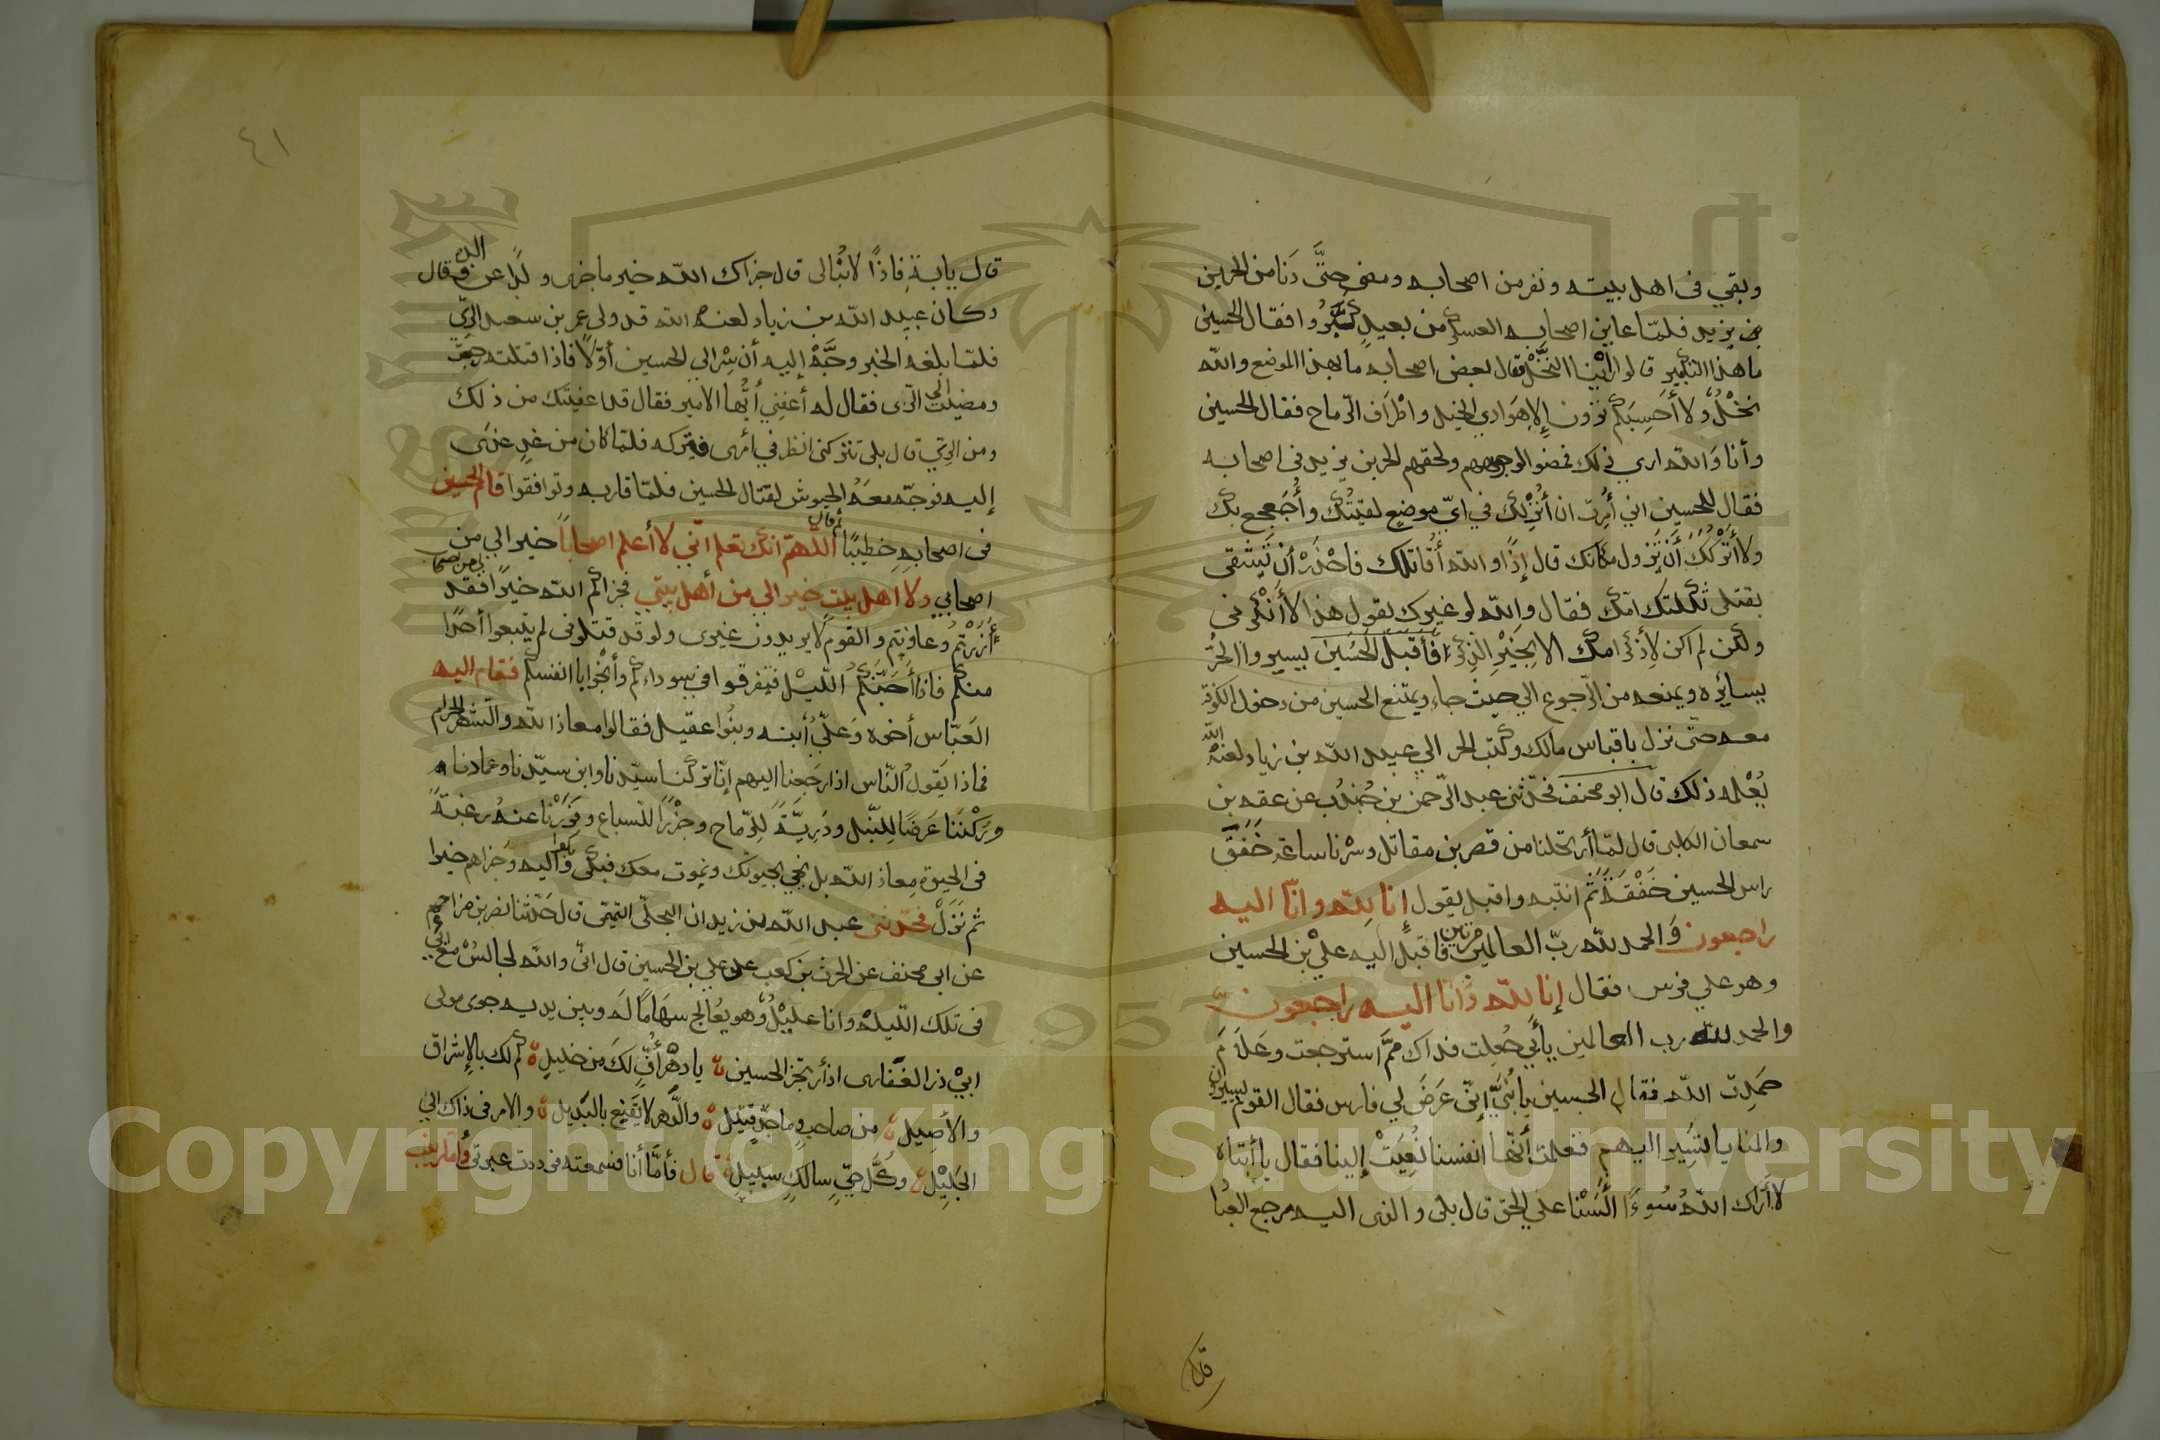 وبقي في اهل بيته ونفر من اصحابه ومضى حتَّى دَنا من الحر بن
بن يزيد فلمّا عاين اصحابه العسكر من بعيدٍ كَبَّرُوا فقال الحسين
ما هذا التكبير قالوا رَأيْنا النخْل فقال بعض اصحابه ما بهذا الموضع والله
نخْلٌ ولا أَحَسِبَكم ترون إِلا هَوَادي الخيل واطْرَاف الرّماح فقال الحسين
وأنا وَالله اري ذلك فمضوا لوجههم ولحقهم الحر بن يزيد في اصحابه
فقال للحسين اني أُمِرْتُ ان أُنْزِلَكَ في ايّ موضع لقيتُكَ وأُجَعجع بك
ولا أَتْرُكُكَ أَنْ تَزول مكانك قال إذًا والله أُقاتلك فاحْذَرْ أَنْ تَشْقى
بقتلى ثكلتك امّك فقال والله لو غيرك يقول هذا لا
ولكن لم اكن لأِذْكُرَ امك الا بِخَيْرِ الذِّكْرِ فَأَقْبَلَ الْحُسَيْن يسير والحُرُّ
يسائره ويمنعه من الرّجوع الي حيث جاء ويمتنع الحسين من دخول الكوفة
معه حتّى نزل باقباس مالك وكتب الحر الي عبيد الله بن زياد لعنه الله
يُعْلمه ذلك قال ابو مخنف فحدّثنى عبد الرّحمن بن جُنْدُب عن عقبه بن
سمعان الكلبى قال لمّا أرتحلنا من قصر بن مقاتل وسْرنا ساعة خَفَقَ
راس الحسين خَفْقَةً ثُمَّ انتبه واقبل يقول إنا لِلّه وانّا اليه
راجعون وَالحمد للّه ربّ العالمين مرتين فاقبل اليه عليْ بن الحسين
وهو علي فرس فقال إنا لله وَانّا اليه راجعون
والحمد لله رب العالمين يا أَبي جُعِلت فداك مِمَّ استرجعت وعَلَامَ
حَمِدت اللّه فقال الحسين يا بُنَيَّ إنّى عَرَضَ لي فارس فقال القوم يسيرون
والمنايا تسير اليهم فعلمت أَنَّها انفسنا نُعِيَتْ إلينا فقال يا أَبَتاه
لا أَرَاك الله سُوءًا أَلَسْنا علي الحق قال بلى والذى اليه مرجع العباد
قال
٤١
قال يا ابة فاِذًا لا نُبَالى قال جزاك الله خير ما جزى ولدًا عن والده قال
وكان عبيد الله بن زياد لعنه الله قد ولى عمر بن سعد الريّ
فلمّا بلغه الخبر وجَّهْ إليه أن سِرْ الي الحسين أوّلًا فاذا قتلته رجعت
ومضيت الي الرّى فقال له أَعفِنِي أَيُّها الامير فقال قد اعفيتك من ذلك
ومن الرّيّ قال بلى تتركنى انظر في أمرى فتركه فلمّا كان من غدٍ غدى
إليه فوجّه معَهُ الجيوش لقتال الحسين فلمّا قاربه وتوافقوا قام الحسين
في اصحابهِ خطيبًا ثم قال أللهمّ انك تعلم انّي لا أعلم اصحابًا خيرا لي من
اصحابي ولا اهل بيت خيرا لي من أهل بيتي فجزاكم الله خيرًا فقد
أُزَرْتُم وعاونتم والقوم لا يريدون غيرى ولو قد قتلونى لم يتبعوا أحدًا
منكم فاذا أَجَنَّكُم اللّيْل فتفرقوا في سواده وأنْجُوا بانفسكم فقام اليه
العَبّاس أخوه وَعَليّ أبنه وبنُوا عقيل فقالوا معاذ الله والشهر الحرام
فماذا يَقول النّاس اذا رجَعنا اليهم إنّا تركنا سيّدنا وابن سيّدنا وعمادنا
وتركْنَنا عَرَضًا لِلنّبل ودَرِيَّةً لِلرّماح وجزْرًا للسباع وفَرَرْنا عنه رغبةً
في الحيوة معاذ الله بل نحي بحيوتك ونموت معك فبكى وبكوا اليه وجزاهم خيرا
ثم نَزَلْ فحدّثنى عبد الله بن زيدان البجلّى التميمى قال حَدّثنا نصر بن مزاحم
عن ابي مخنف عن الحرث بن كعب علي علي بن الحسين قال انّى والله لجالسُ مع ابي
في تلك اللّيله وانا عليْلٌ وهو يُعَالج سهَامًا لَه وبين يديه جوى مولى
ابيْ ذر الغفارى اذ أرتجز الحسين يا دَهْرُ أُفٍّ لكَ من خليلٍ كم لك بالإشراق
والأَصِيلِ من صاحبٍ وماجدٍ قتيْلٍ والدَّهر لا يَقْنِع بالبَديل والامر في ذاك الي
الجَلِيْلِ وكُلُّ حيٍّ سالكِ سبيلِ قال فأَمّا أنا فسمعته فرددت عبرتى وأما زينب